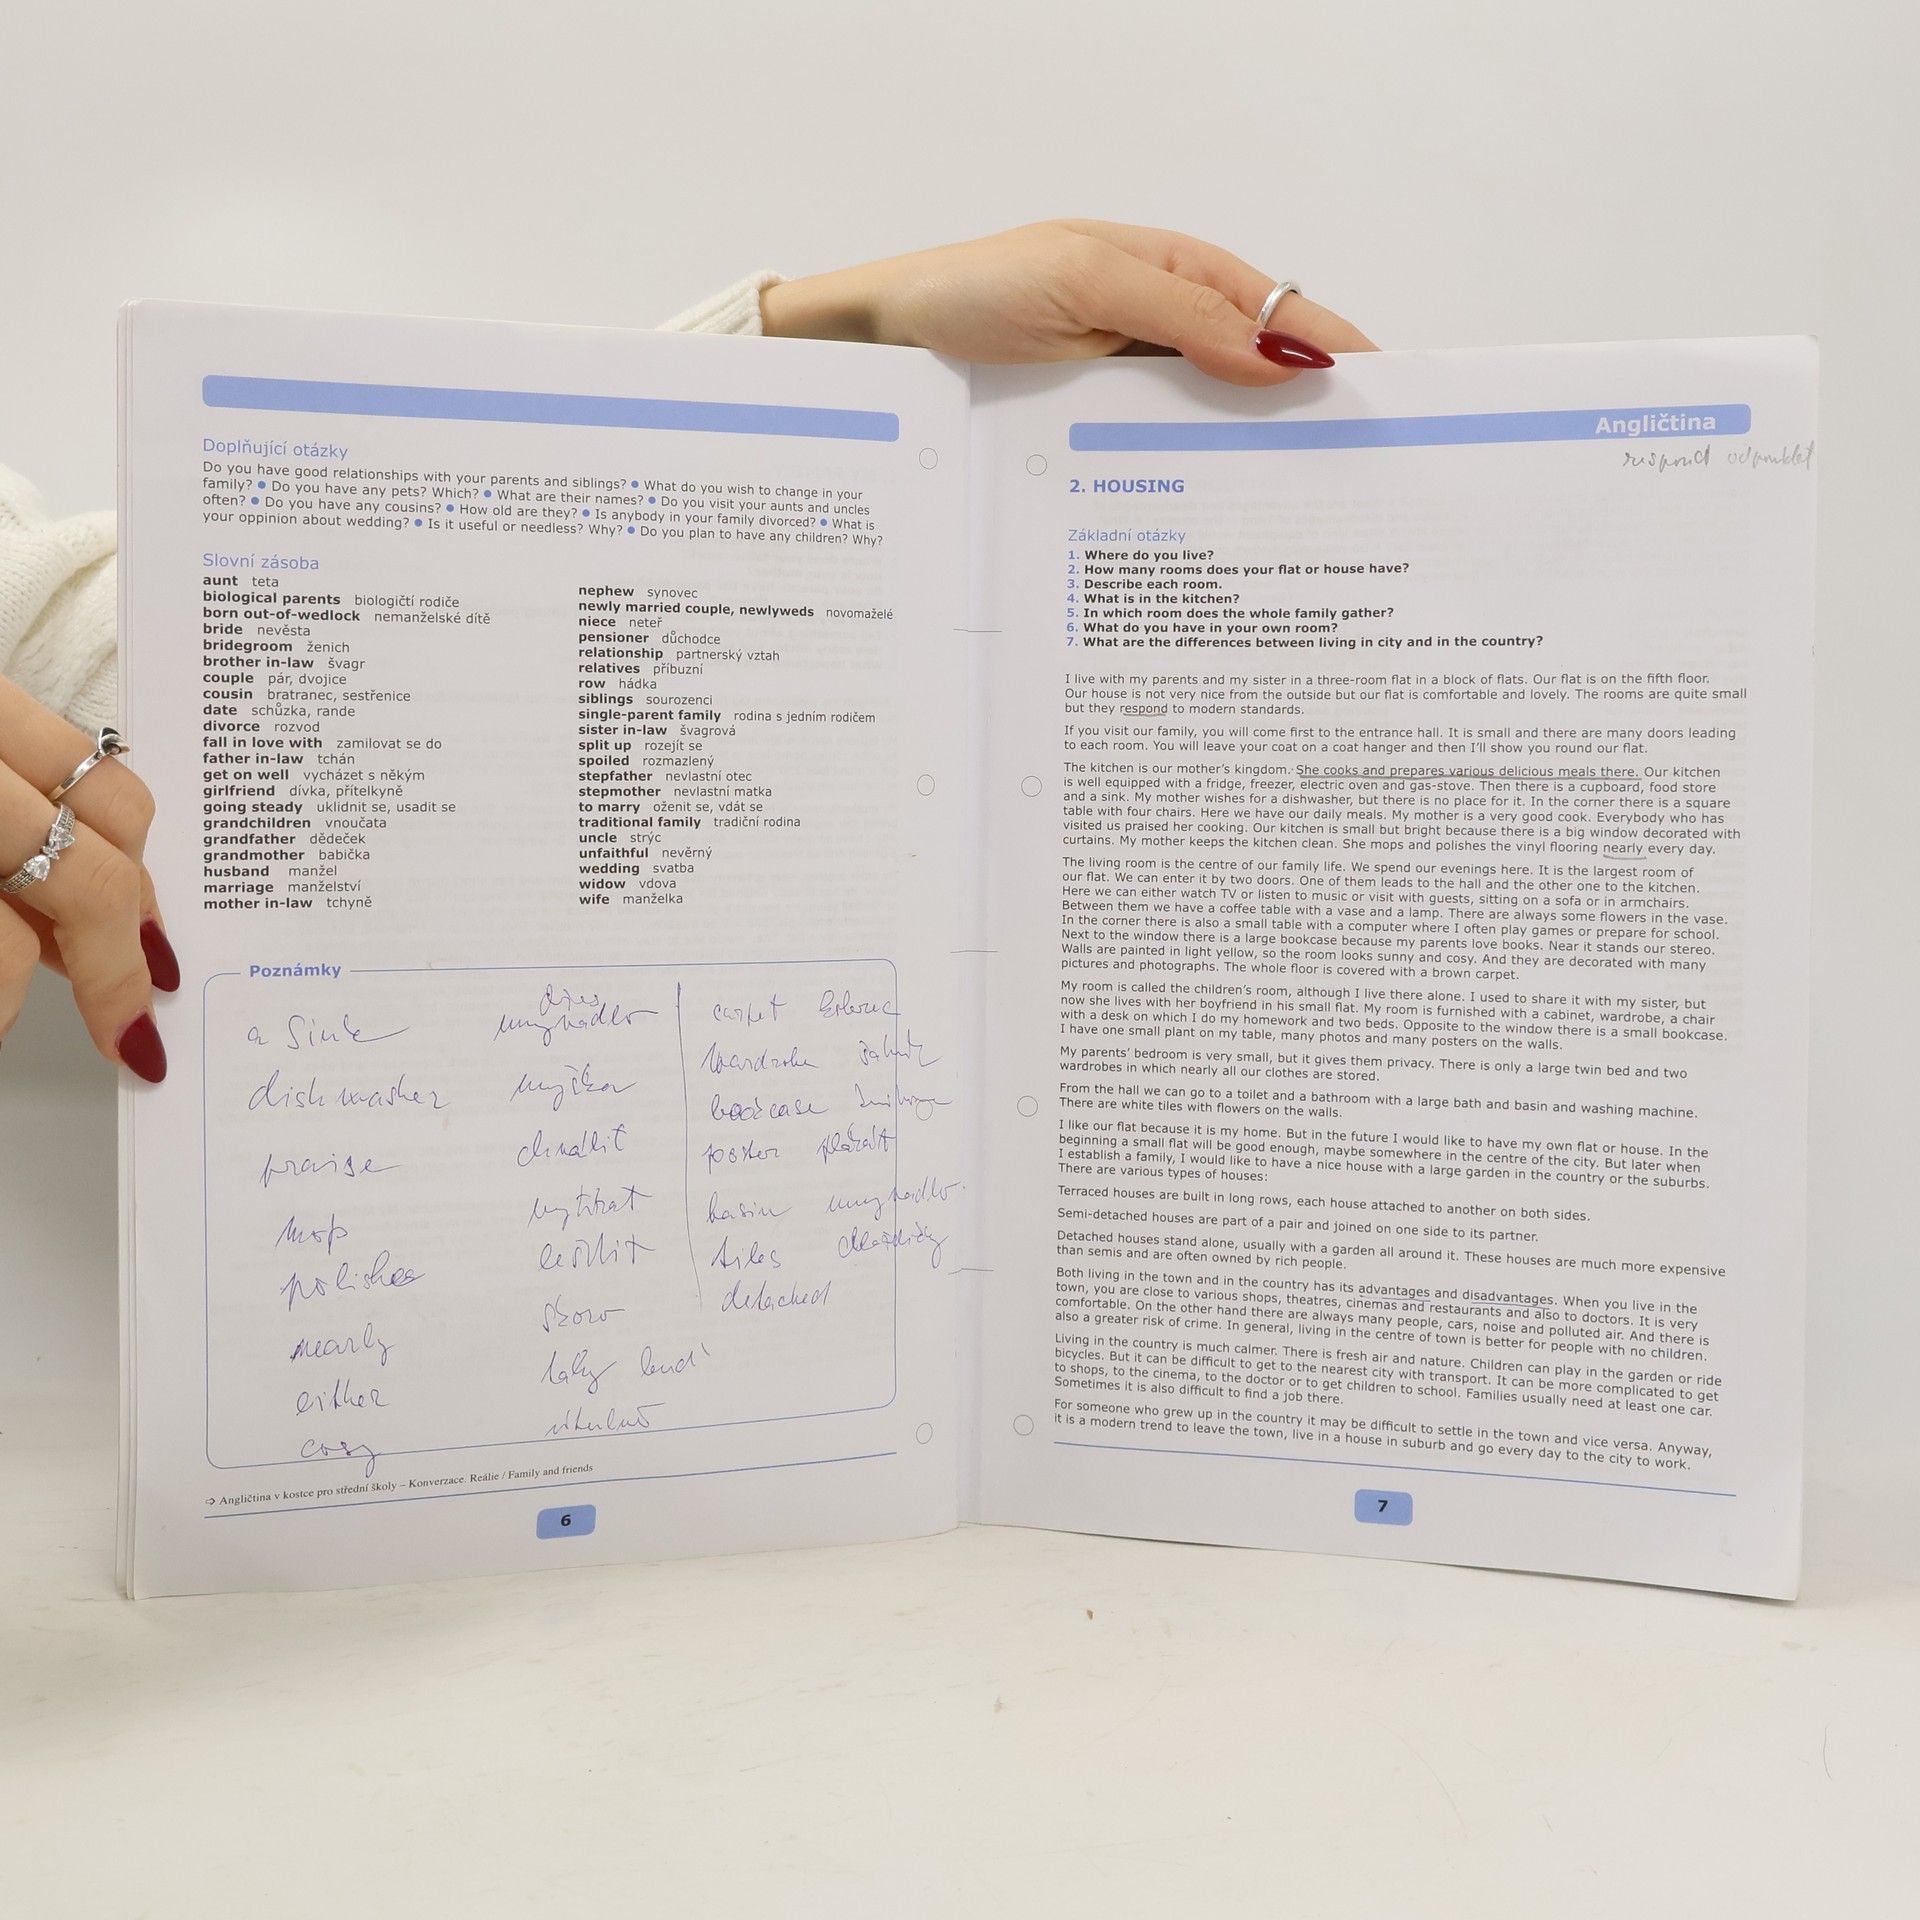 Doplňující otázky
Do you have good relationships with your parents and siblings? ● What do you wish to change in your
family? ● Do you have any pets? Which? ● What are their names? ● Do you visit your aunts and uncles
often? ● Do you have any cousins? ● How old are they? ● Is anybody in your family divorced? ● What is
your oppinion about wedding? ● Is it useful or needless? Why? ● Do you plan to have any children? Why?
Slovní zásoba
aunt teta
biological parents biologičtí rodiče
born out-of-wedlock nemanželské dítě
bride nevěsta
bridegroom ženich
brother in-law švagr
couple pár, dvojice
cousin bratranec, sestřenice
date schůzka, rande
divorce rozvod
fall in love with zamilovat se do
father in-law tchán
get on well vycházet s někým
girlfriend dívka, přítelkyně
going steady uklidnit se, usadit se
grandchildren vnoučata
grandfather dědeček
grandmother babička
husband manžel
marriage manželství
mother in-law tchyně
nephew synovec
newly married couple, newlyweds novomaželé
niece neteř
pensioner důchodce
relationship partnerský vztah
relatives příbuzní
row hádka
siblings sourozenci
single-parent family rodina s jedním rodičem
sister in-law švagrová
split up rozejít se
spoiled rozmazlený
stepfather nevlastní otec
stepmother nevlastní matka
to marry oženit se, vdát se
traditional family tradiční rodina
uncle strýc
unfaithful nevěrný
wedding svatba
widow vdova
wife manželka
Poznámky
a sink dřez umyvadlo
dishwasher myčka
praise chválit
mop vytírat
polishes leštit
nearly skoro
either taky buď
cosy útulně
carpet koberec
wardrobe
bookcase
poster plakát
basin umyvadlo
tiles
detached
➩ Angličtina v kostce pro střední školy – Konverzace. Reálie / Family and friends
6
Angličtina
respond
2. HOUSING
Základní otázky
1. Where do you live?
2. How many rooms does your flat or house have?
3. Describe each room.
4. What is in the kitchen?
5. In which room does the whole family gather?
6. What do you have in your own room?
7. What are the differences between living in city and in the country?
I live with my parents and my sister in a three-room flat in a block of flats. Our flat is on the fifth floor.
Our house is not very nice from the outside but our flat is comfortable and lovely. The rooms are quite small
but they respond to modern standards.
If you visit our family, you will come first to the entrance hall. It is small and there are many doors leading
to each room. You will leave your coat on a coat hanger and then I'll show you round our flat.
The kitchen is our mother's kingdom. She cooks and prepares various delicious meals there. Our kitchen
is well equipped with a fridge, freezer, electric oven and gas-stove. Then there is a cupboard, food store
and a sink. My mother wishes for a dishwasher, but there is no place for it. In the corner there is a square
table with four chairs. Here we have our daily meals. My mother is a very good cook. Everybody who has
visited us praised her cooking. Our kitchen is small but bright because there is a big window decorated with
curtains. My mother keeps the kitchen clean. She mops and polishes the vinyl flooring nearly every day.
The living room is the centre of our family life. We spend our evenings here. It is the largest room of
our flat. We can enter it by two doors. One of them leads to the hall and the other one to the kitchen.
Here we can either watch TV or listen to music or visit with guests, sitting on a sofa or in armchairs.
Between them we have a coffee table with a vase and a lamp. There are always some flowers in the vase.
In the corner there is also a small table with a computer where I often play games or prepare for school.
Next to the window there is a large bookcase because my parents love books. Near it stands our stereo.
Walls are painted in light yellow, so the room looks sunny and cosy. And they are decorated with many
pictures and photographs. The whole floor is covered with a brown carpet.
My room is called the children's room, although I live there alone. I used to share it with my sister, but
now she lives with her boyfriend in his small flat. My room is furnished with a cabinet, wardrobe, a chair
with a desk on which I do my homework and two beds. Opposite to the window there is a small bookcase.
I have one small plant on my table, many photos and many posters on the walls.
My parents' bedroom is very small, but it gives them privacy. There is only a large twin bed and two
wardrobes in which nearly all our clothes are stored.
From the hall we can go to a toilet and a bathroom with a large bath and basin and washing machine.
There are white tiles with flowers on the walls.
I like our flat because it is my home. But in the future I would like to have my own flat or house. In the
beginning a small flat will be good enough, maybe somewhere in the centre of the city. But later when
I establish a family, I would like to have a nice house with a large garden in the country or the suburbs.
There are various types of houses:
Terraced houses are built in long rows, each house attached to another on both sides.
Semi-detached houses are part of a pair and joined on one side to its partner.
Detached houses stand alone, usually with a garden all around it. These houses are much more expensive
than semis and are often owned by rich people.
Both living in the town and in the country has its advantages and disadvantages. When you live in the
town, you are close to various shops, theatres, cinemas and restaurants and also to doctors. It is very
comfortable. On the other hand there are always many people, cars, noise and polluted air. And there is
also a greater risk of crime. In general, living in the centre of town is better for people with no children.
Living in the country is much calmer. There is fresh air and nature. Children can play in the garden or ride
bicycles. But it can be difficult to get to the nearest city with transport. It can be more complicated to get
to shops, to the cinema, to the doctor or to get children to school. Families usually need at least one car.
Sometimes it is also difficult to find a job there.
For someone who grew up in the country it may be difficult to settle in the town and vice versa. Anyway,
it is a modern trend to leave the town, live in a house in suburb and go every day to the city to work.
7